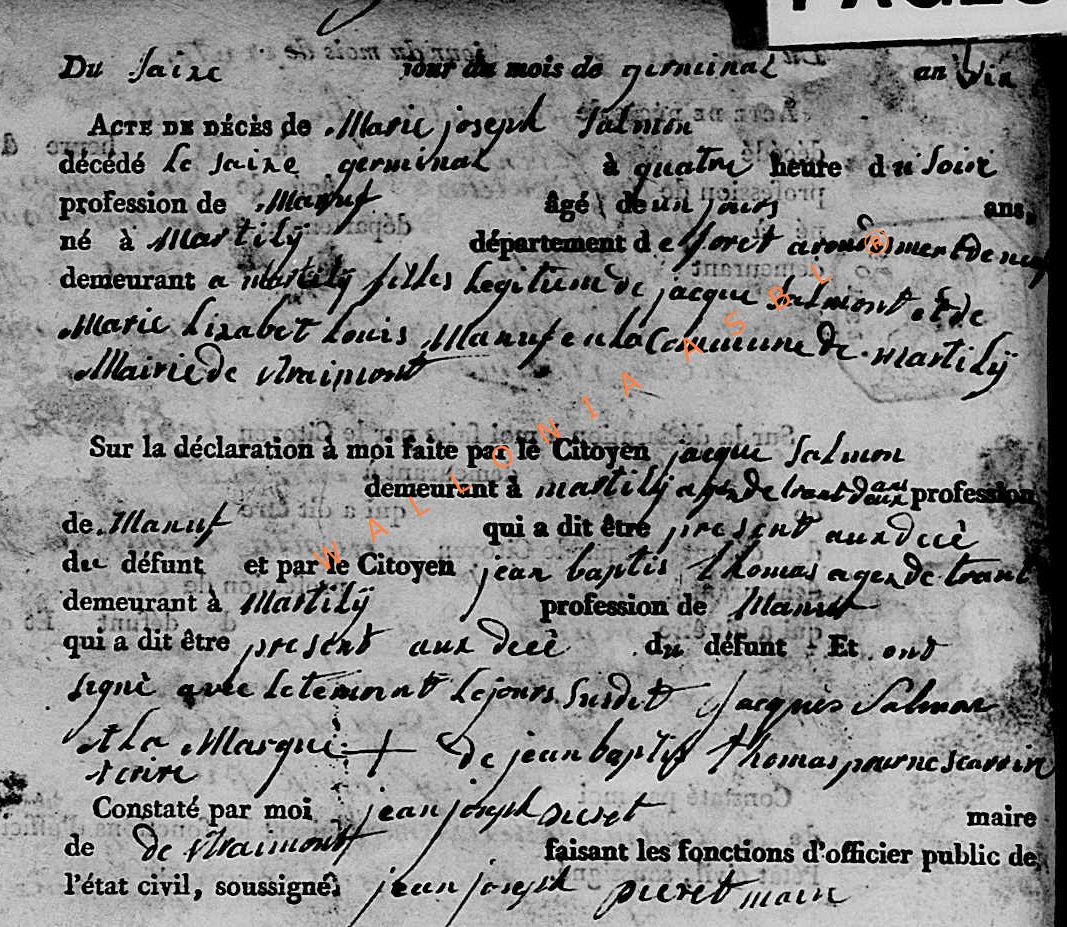 PAGES
Du saize jour du mois de germinal an Dix
ACTE DE DÉCÈS de Marie joseph Salmon
décédé le saize germinal à quatre heure du Soire
profession de Manuf âgé de un jours ans,
né à Martilÿ département de foret
demeurant a martilÿ filles legitime de jacque Salmont et de
Marie Lizabet Louis Manuf en la Commune de martilÿ
Mairie de Vraimont
Sur la déclaration à moi faite par le Citoyen jacque Salmon
demeurant à martilÿ agez de trant deux ans profession
de Manuf qui a dit être present aux decè
du défunt et par le Citoyen jean baptis thomas agez de trant
demeurant à Martilÿ profession de Manuf
qui a dit être present aux decè du défunt Et ont
signè avec le temoent le jours Susdit Jacques Salmon
et la Marque + de jean baptis thomas pour ne scavoire
ecrire
Constaté par moi jean joseph piret maire
de de Vraimont faisant les fonctions d'officier public de
l'état civil, soussigné. jean joseph piret maire
WALLONIA ASBL ®